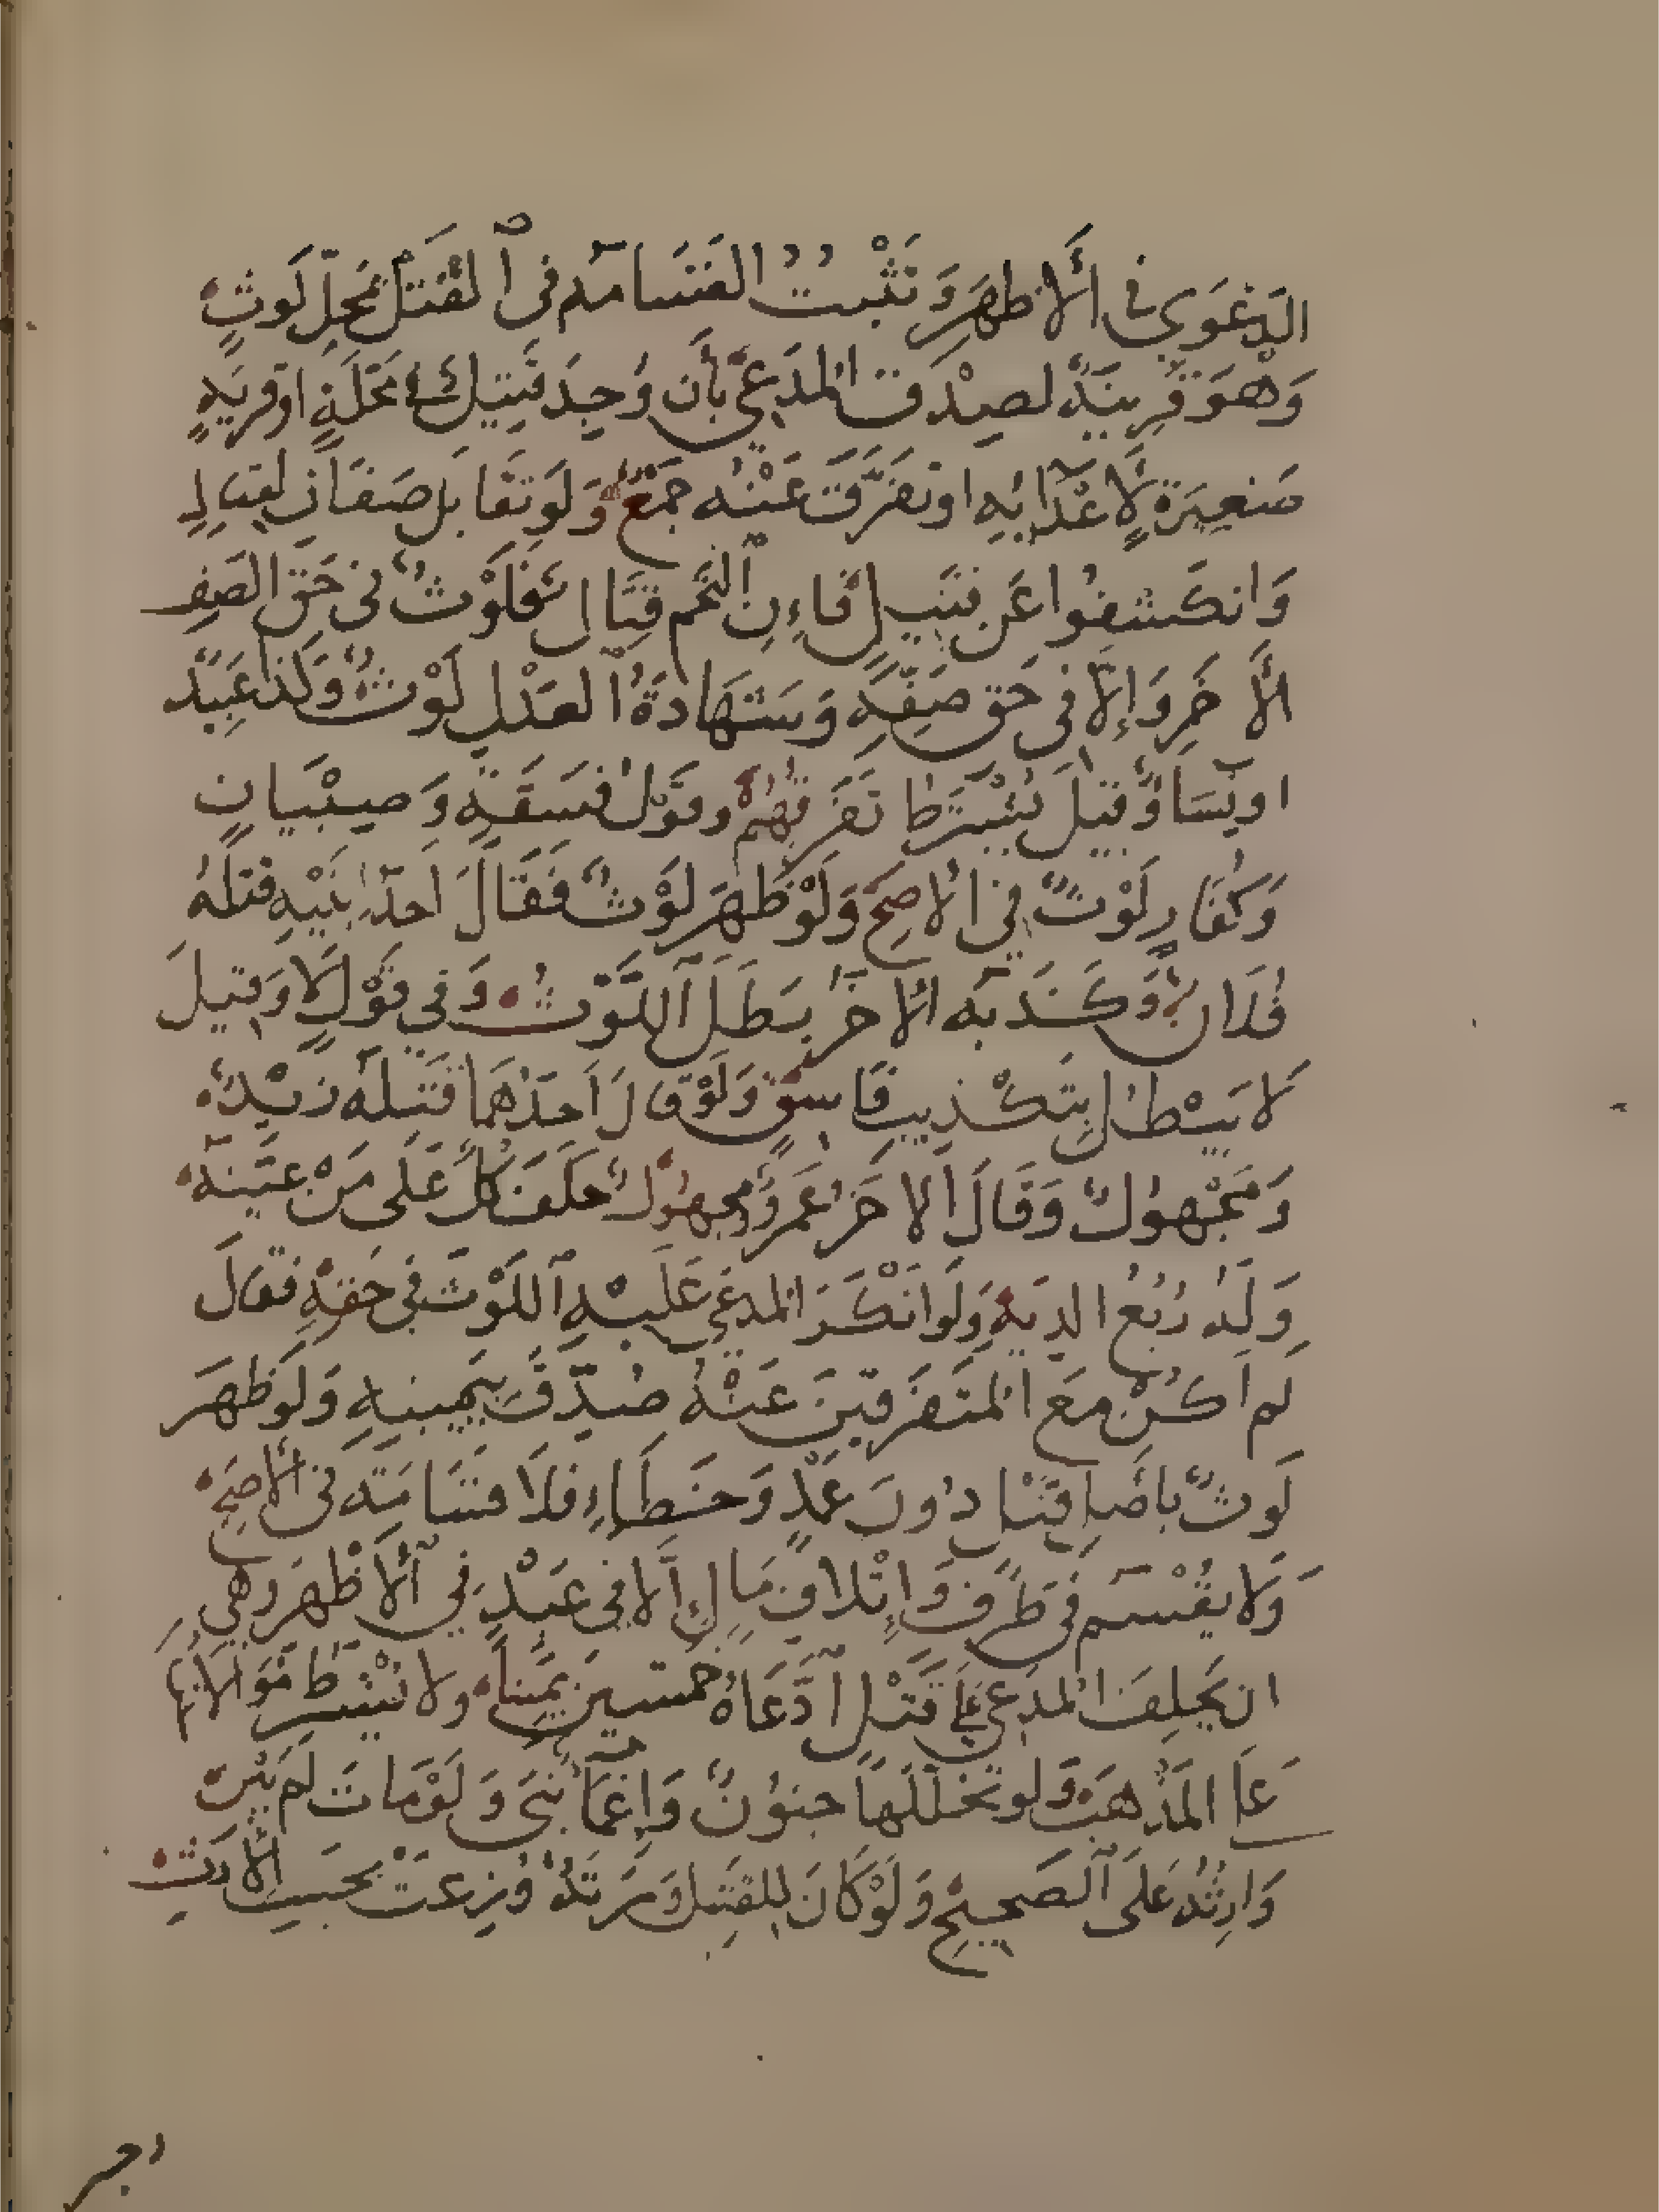 الدَعْوَى في الأظهَرِ وَتَثْبُتُ القَسَامَة في القَتْلِ بمَحِلّ لَوثٍ
وَهوَ قَرِينَةٌ لصِدْقِ المدَّعِى بأَن وُجِدَ قَتِيلٌ بمَحَلَةٍ اوقريَةٍ
صَغيرَةٍ لِأعْدَائِهِ او تفَرَّقَ عَنْهُ جَمْعٌ وَلَو تقَابَل صَفانِ لقِتالٍ
وَانكَشفُوا عَن قتَيلٍ فَإِن التَحَم قِتَالٌ فَلَوْثٌ في حَق الصَفِ
الأَخَرِ وَإِلّا فى حَق صَفِهِ وَشَهَادَةُ العَدْلِ لَوْثٌ وَكَذا عَبِيدٌ
اونِسَاءٌ وَقيلَ يُشْتَرَط تَفَرقهُم وقَوْلُ فسَقَةٍ وَصِبْيَانٍ
وَكُفارٍ لَوْثٌ فِي الاصَحِ وَلَوْ ظَهَرَ لَوْثٌ فَقَالَ احَدُ ابْنَيْهِ قتلَهُ
فُلَانٌ وَكَذبَه الأخَرُ بَطَلَ اللَّوْثُ وَفي قَوْلٍ لا وَقِيلَ
لا يَبْطُل بِتَكْذِيبِ فَاسِقٍ وَلَوْ قالَ احَدُهُمَا قَتَلَه زَيْدٌ
وَمَجْهولٌ وَقَالَ الاخَرُ عَمرٌو وَمجهُولٌ حلَفَ كلٌ عَلَى مَنْ عَيَّنهُ
وَلَهُ رُبُعُ الدِيَةِ وَلَو انْكَرَ المدعَى عَلَيْهِ اللَّوْثَ في حَقِهِ فقالَ
لَم اَكُنْ مَعَ المتَفَرِقِينَ عَنْهُ صُدِّقَ بِيَمِينِهِ وَلَو ظَهَرَ
لَوثٌ بِأَصْلِ قَتْلٍ دُونَ عَمْدٍ وَخَطَإٍ فلَا قسَامَةَ في الأصَحِ
وَلا يُقْسَم فى طَرَفٍ وَإِتْلافِ مَالٍ إلَّا فى عَبْدٍ في الأظْهَرِ وَهي
ان يَحلِفَ المدَعِى عَلَى قَتْلٍ ادَّعَاهُ خَمْسِينَ يَمِيناً ولا يُشْتَرَط مُوَالاتهَا
عَلَى المَذْهَبِ وَلو تخَلَلَهَا جنوُنٌ وَإِغمَاءٌ بَنَى وَلَوْمَاتَ لم يَبْنِ
وَارِثُهُ عَلَى الصَحِيحِ وَلَوْ كانَ لِلقَتِيلِ وَرَثَةٌ وُزِعَتْ بحَسَبِ الارثِ